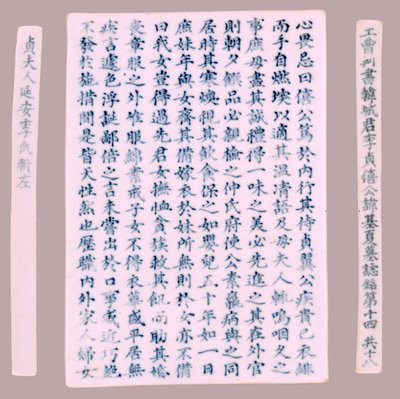 工曹判書韓城君李貞僖公諱基夏墓誌銘第十四 共十八
心畏忌曰僖公篤於內行其侍貞翼公疾嘗已衣緋
而手自燃埃以適其溫凊語及母夫人輒嗚咽久之
事庶母盡其誠禮得一味之美必先進之其在外官
則朝夕饌品必親檢之仲氏府使公素羸病與之同
居時其寒燠視其飲食保之如嬰兒五十年如一日
庶妹年與女齊其備嫁衣於妹所無則於女亦不備
曰我女豈得過先君女撫恤貧族救其飢而助其婚
喪章服之外雖服綿素戒子女不得衣華盛平居無
疾言遽色浮誕鄙倍之言未嘗出於口事或近巧絕
不發於施措間是皆天性然也歷職內外家人婦女
貞夫人延安李氏祔左